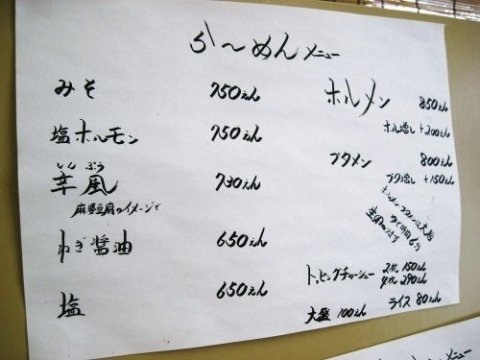 らーめん メニュー
みそ 750えん
塩ホルモン 750えん
しんぷう
辛風 730えん
麻婆豆腐のイメージで
ねぎ醤油 650えん
塩 650えん
ホルメン 850えん
ホル増し +200えん
ブタメン 800えん
ブタ増し +150えん
トッピングチャーシュー 2枚 150えん
4枚 290えん
大盛 100えん ライス 80えん
メニュー